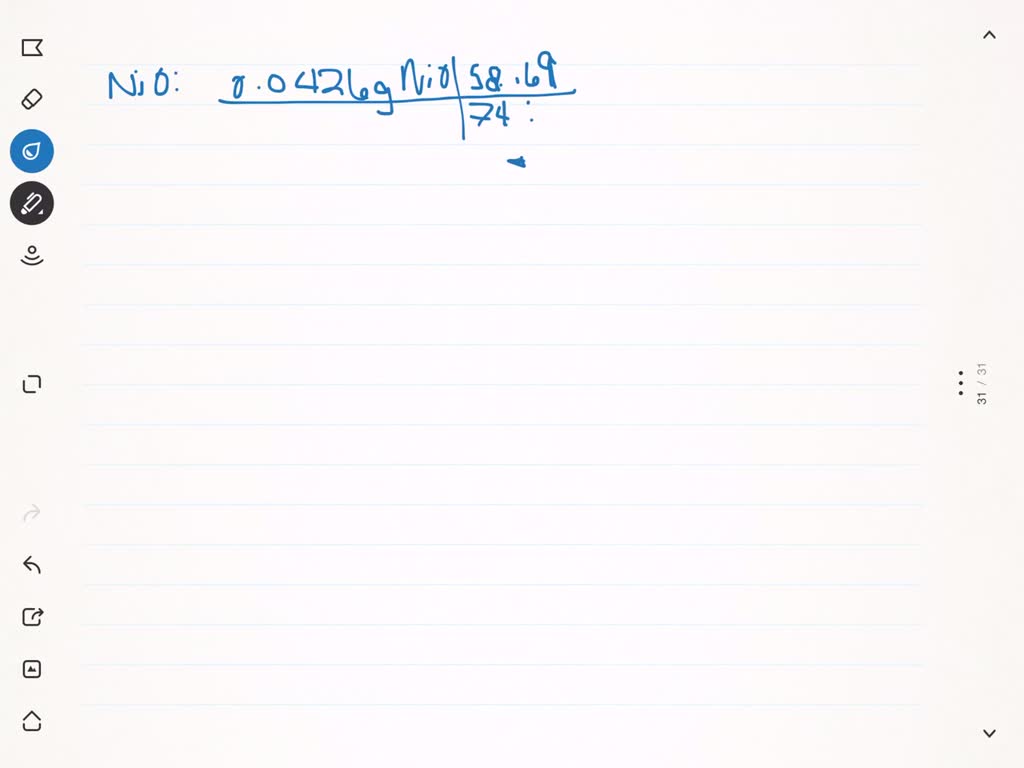 NiO: 0.0426g NiO | 58.69
74 :
31 / 31